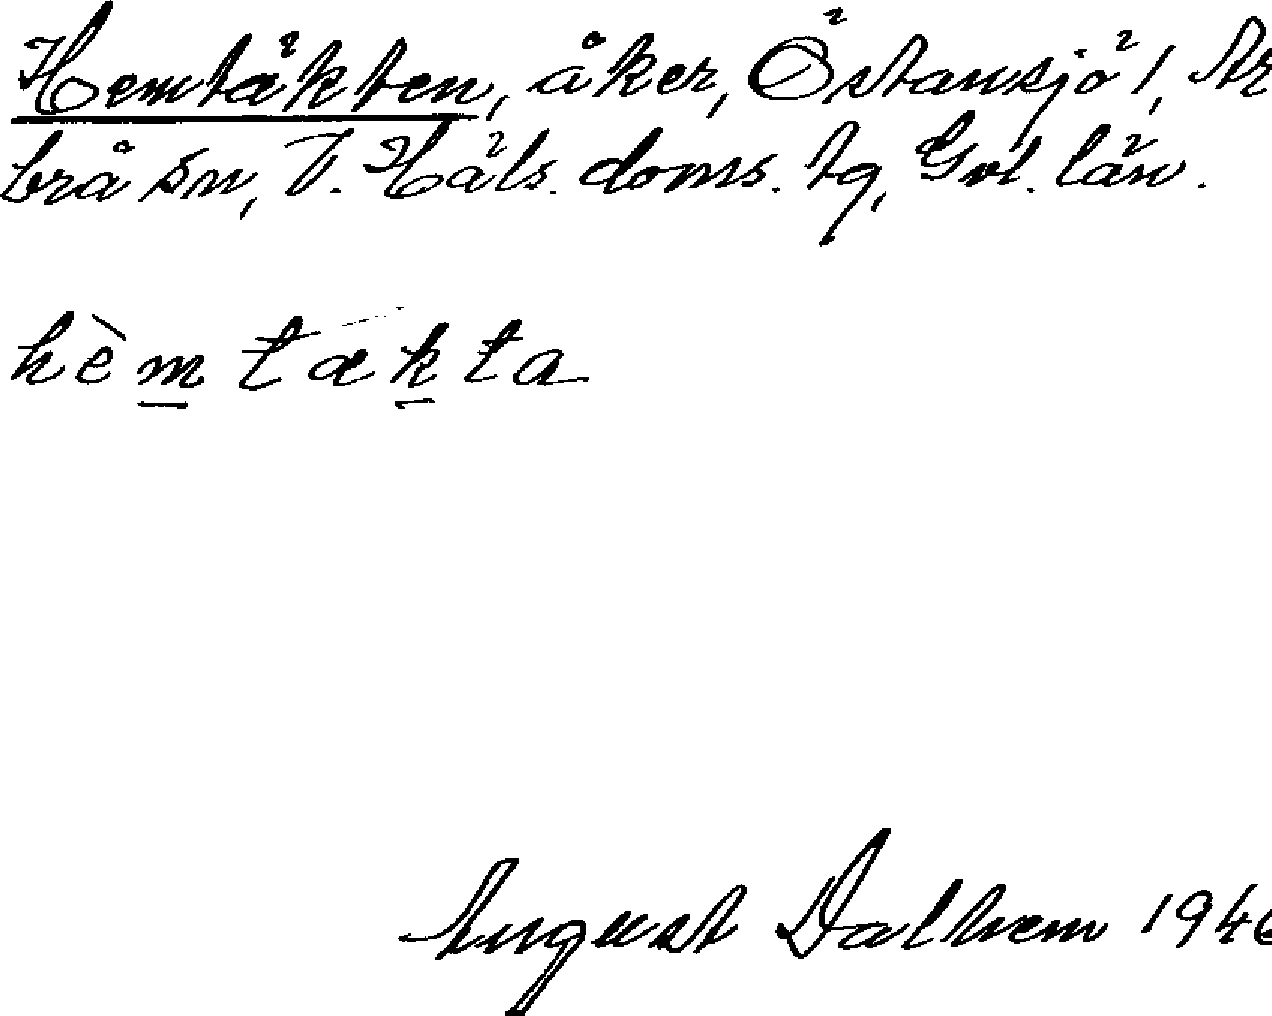 Hemtäkten, åker, Östansjö 1, Ar
brå sn, V. Häls. doms. tg, Gvl. län.
hèmtækta
August Dalhem 1946